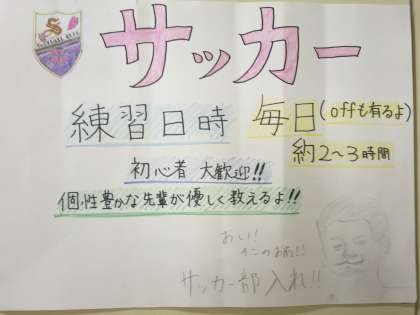 サッカー
練習日時 毎日(offも有るよ)
約2~3時間
初心者 大歓迎!!
個性豊かな先輩が優しく教えるよ!!
おい!!
そこのお前!!
サッカー部入れ!!